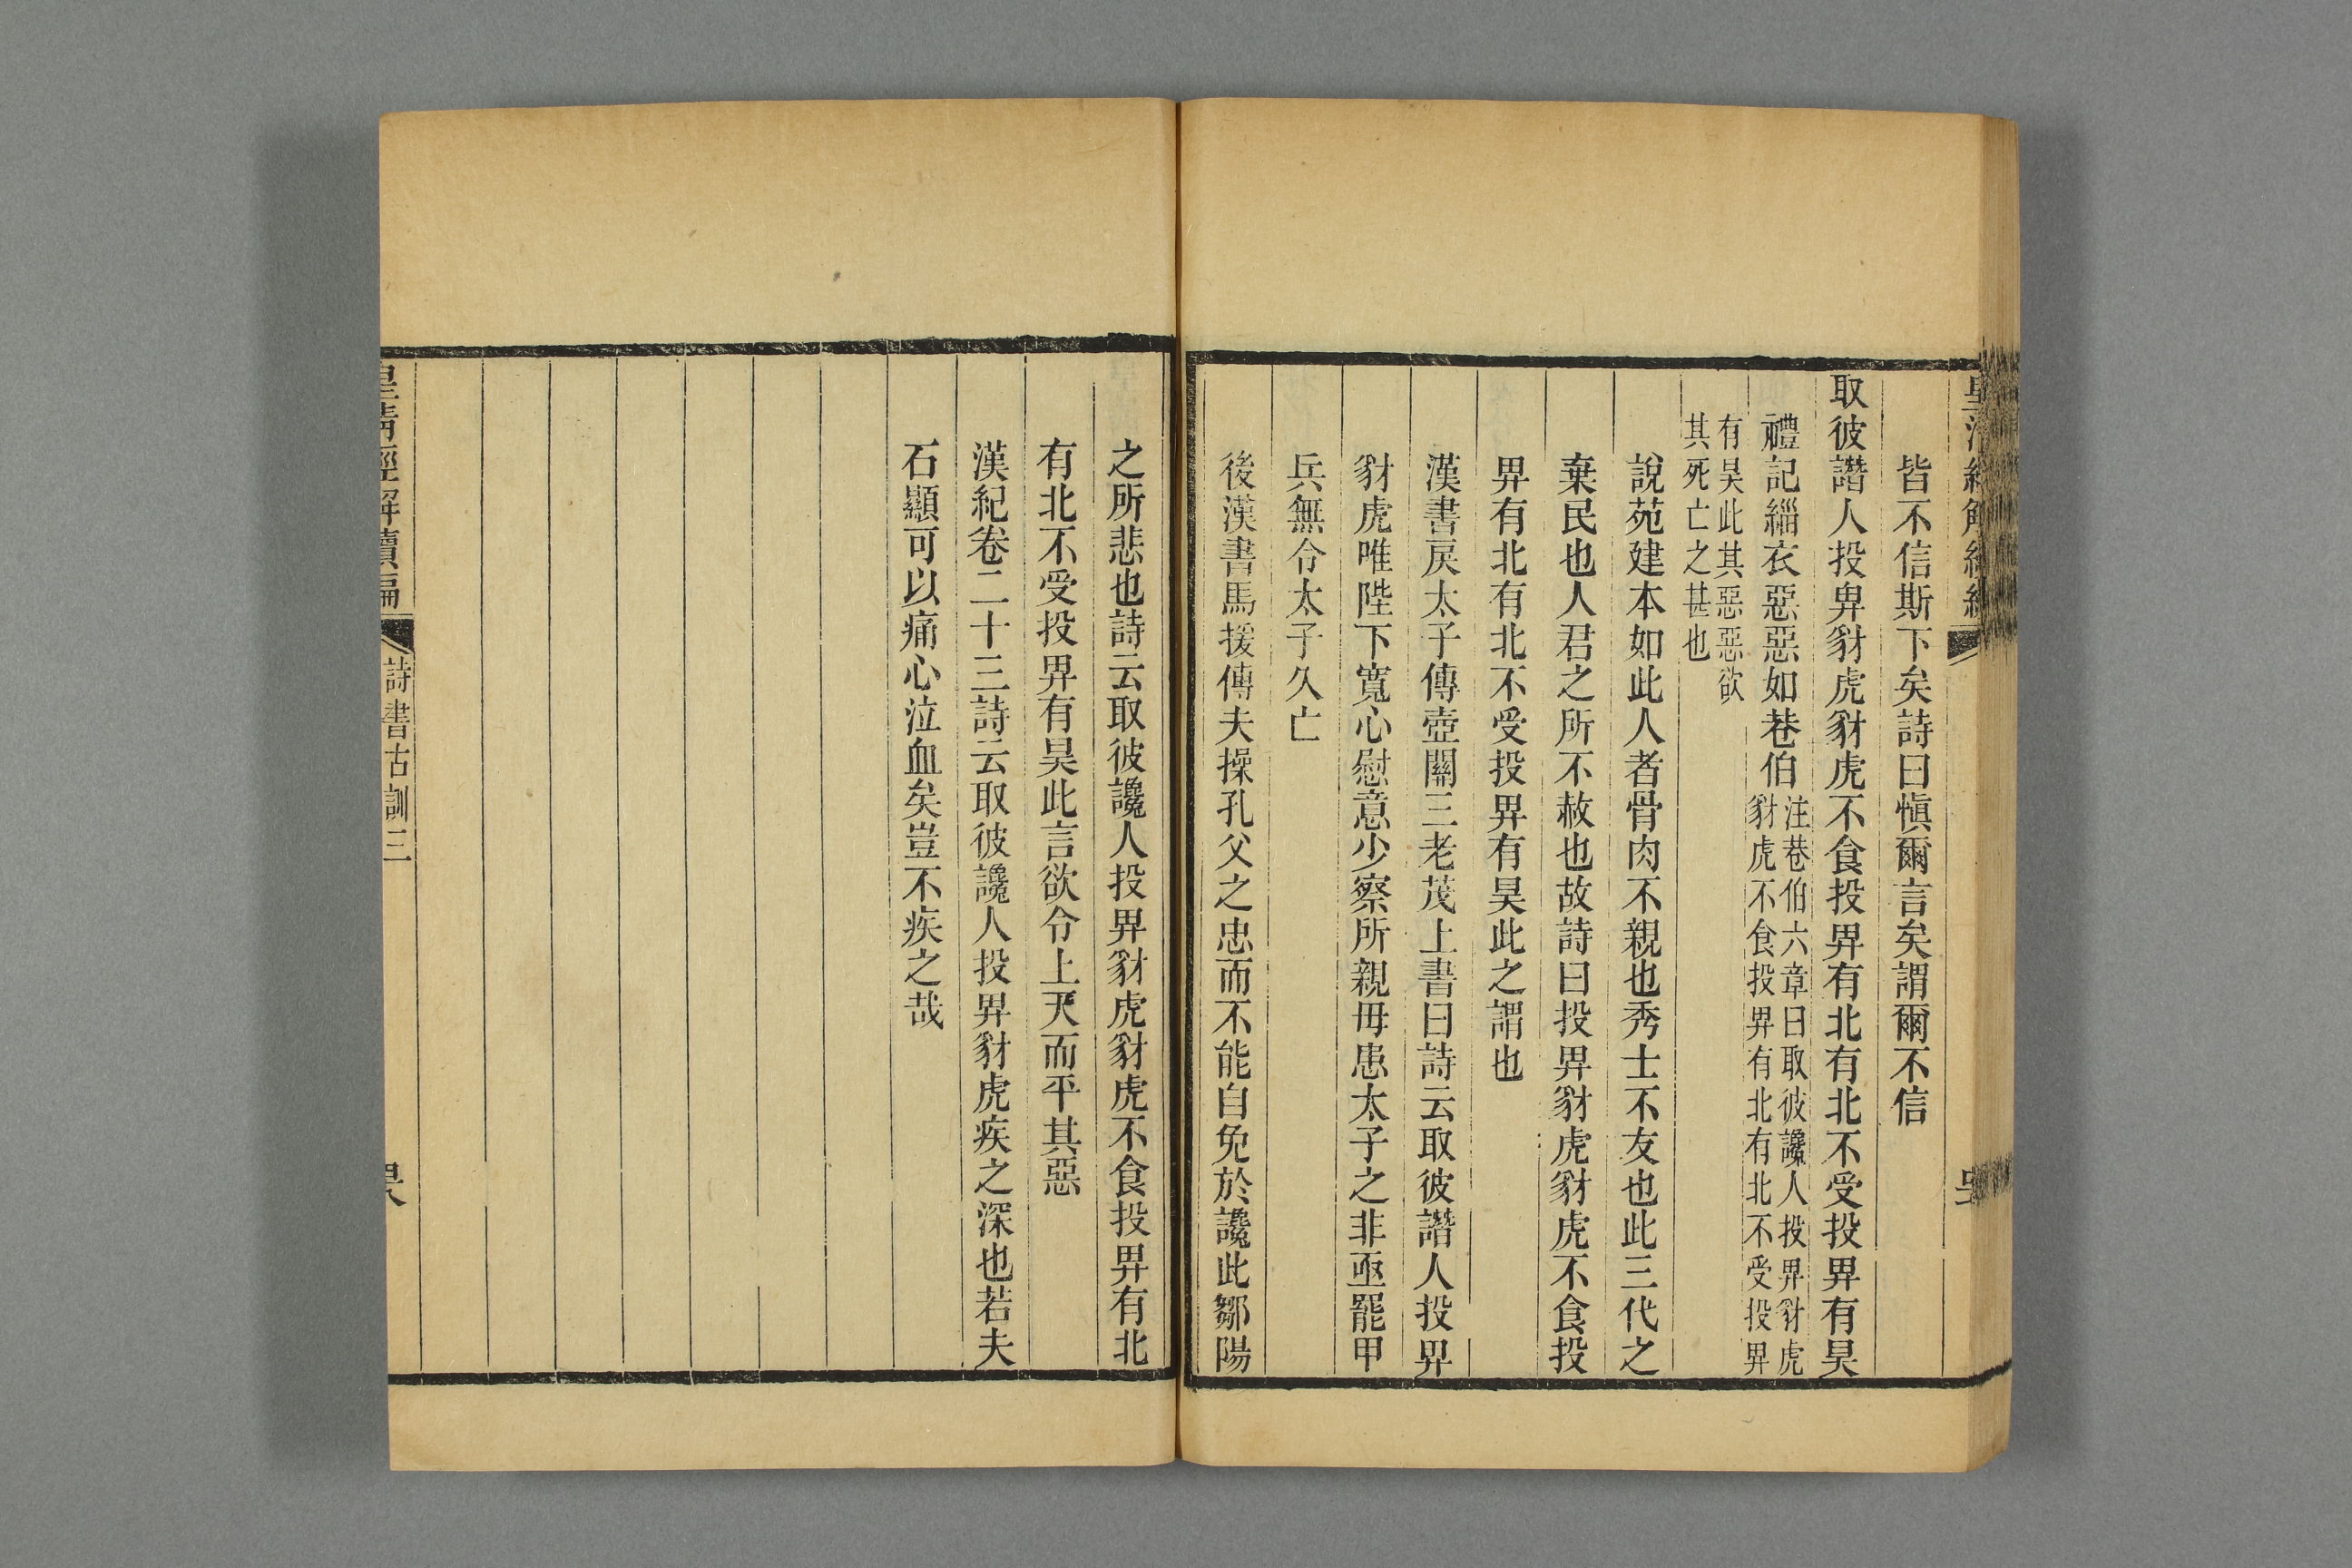 皆不信斯下矣詩曰愼爾言矣謂爾不信
取彼譖人投畀豺虎豺虎不食投畀有北有北不受投畀有昊
禮記緇衣惡惡如巷伯
注巷伯六章曰取彼讒人投畀豺虎
豺虎不食投畀有北有北不受投畀
有昊此其惡惡欲
其死亡之甚也
說苑建本如此人者骨肉不親也秀士不友也此三代之
棄民也人君之所不赦也故詩曰投畀豺虎豺虎不食投
畀有北有北不受投畀有昊此之謂也
漢書戾太子傳壺關三老茂上書曰詩云取彼譖人投畀
豺虎唯陛下寬心慰意少察所親毋患太子之非亟罷甲
兵無令太子久亡
後漢書馬援傳夫操孔父之忠而不能自免於讒此鄒陽
之所悲也詩云取彼讒人投畀豺虎豺虎不食投畀有北
有北不受投畀有昊此言欲令上天而平其惡
漢紀卷二十三詩云取彼讒人投畀豺虎疾之深也若夫
石顯可以痛心泣血矣豈不疾之哉
皇清經解續編
詩書古訓三